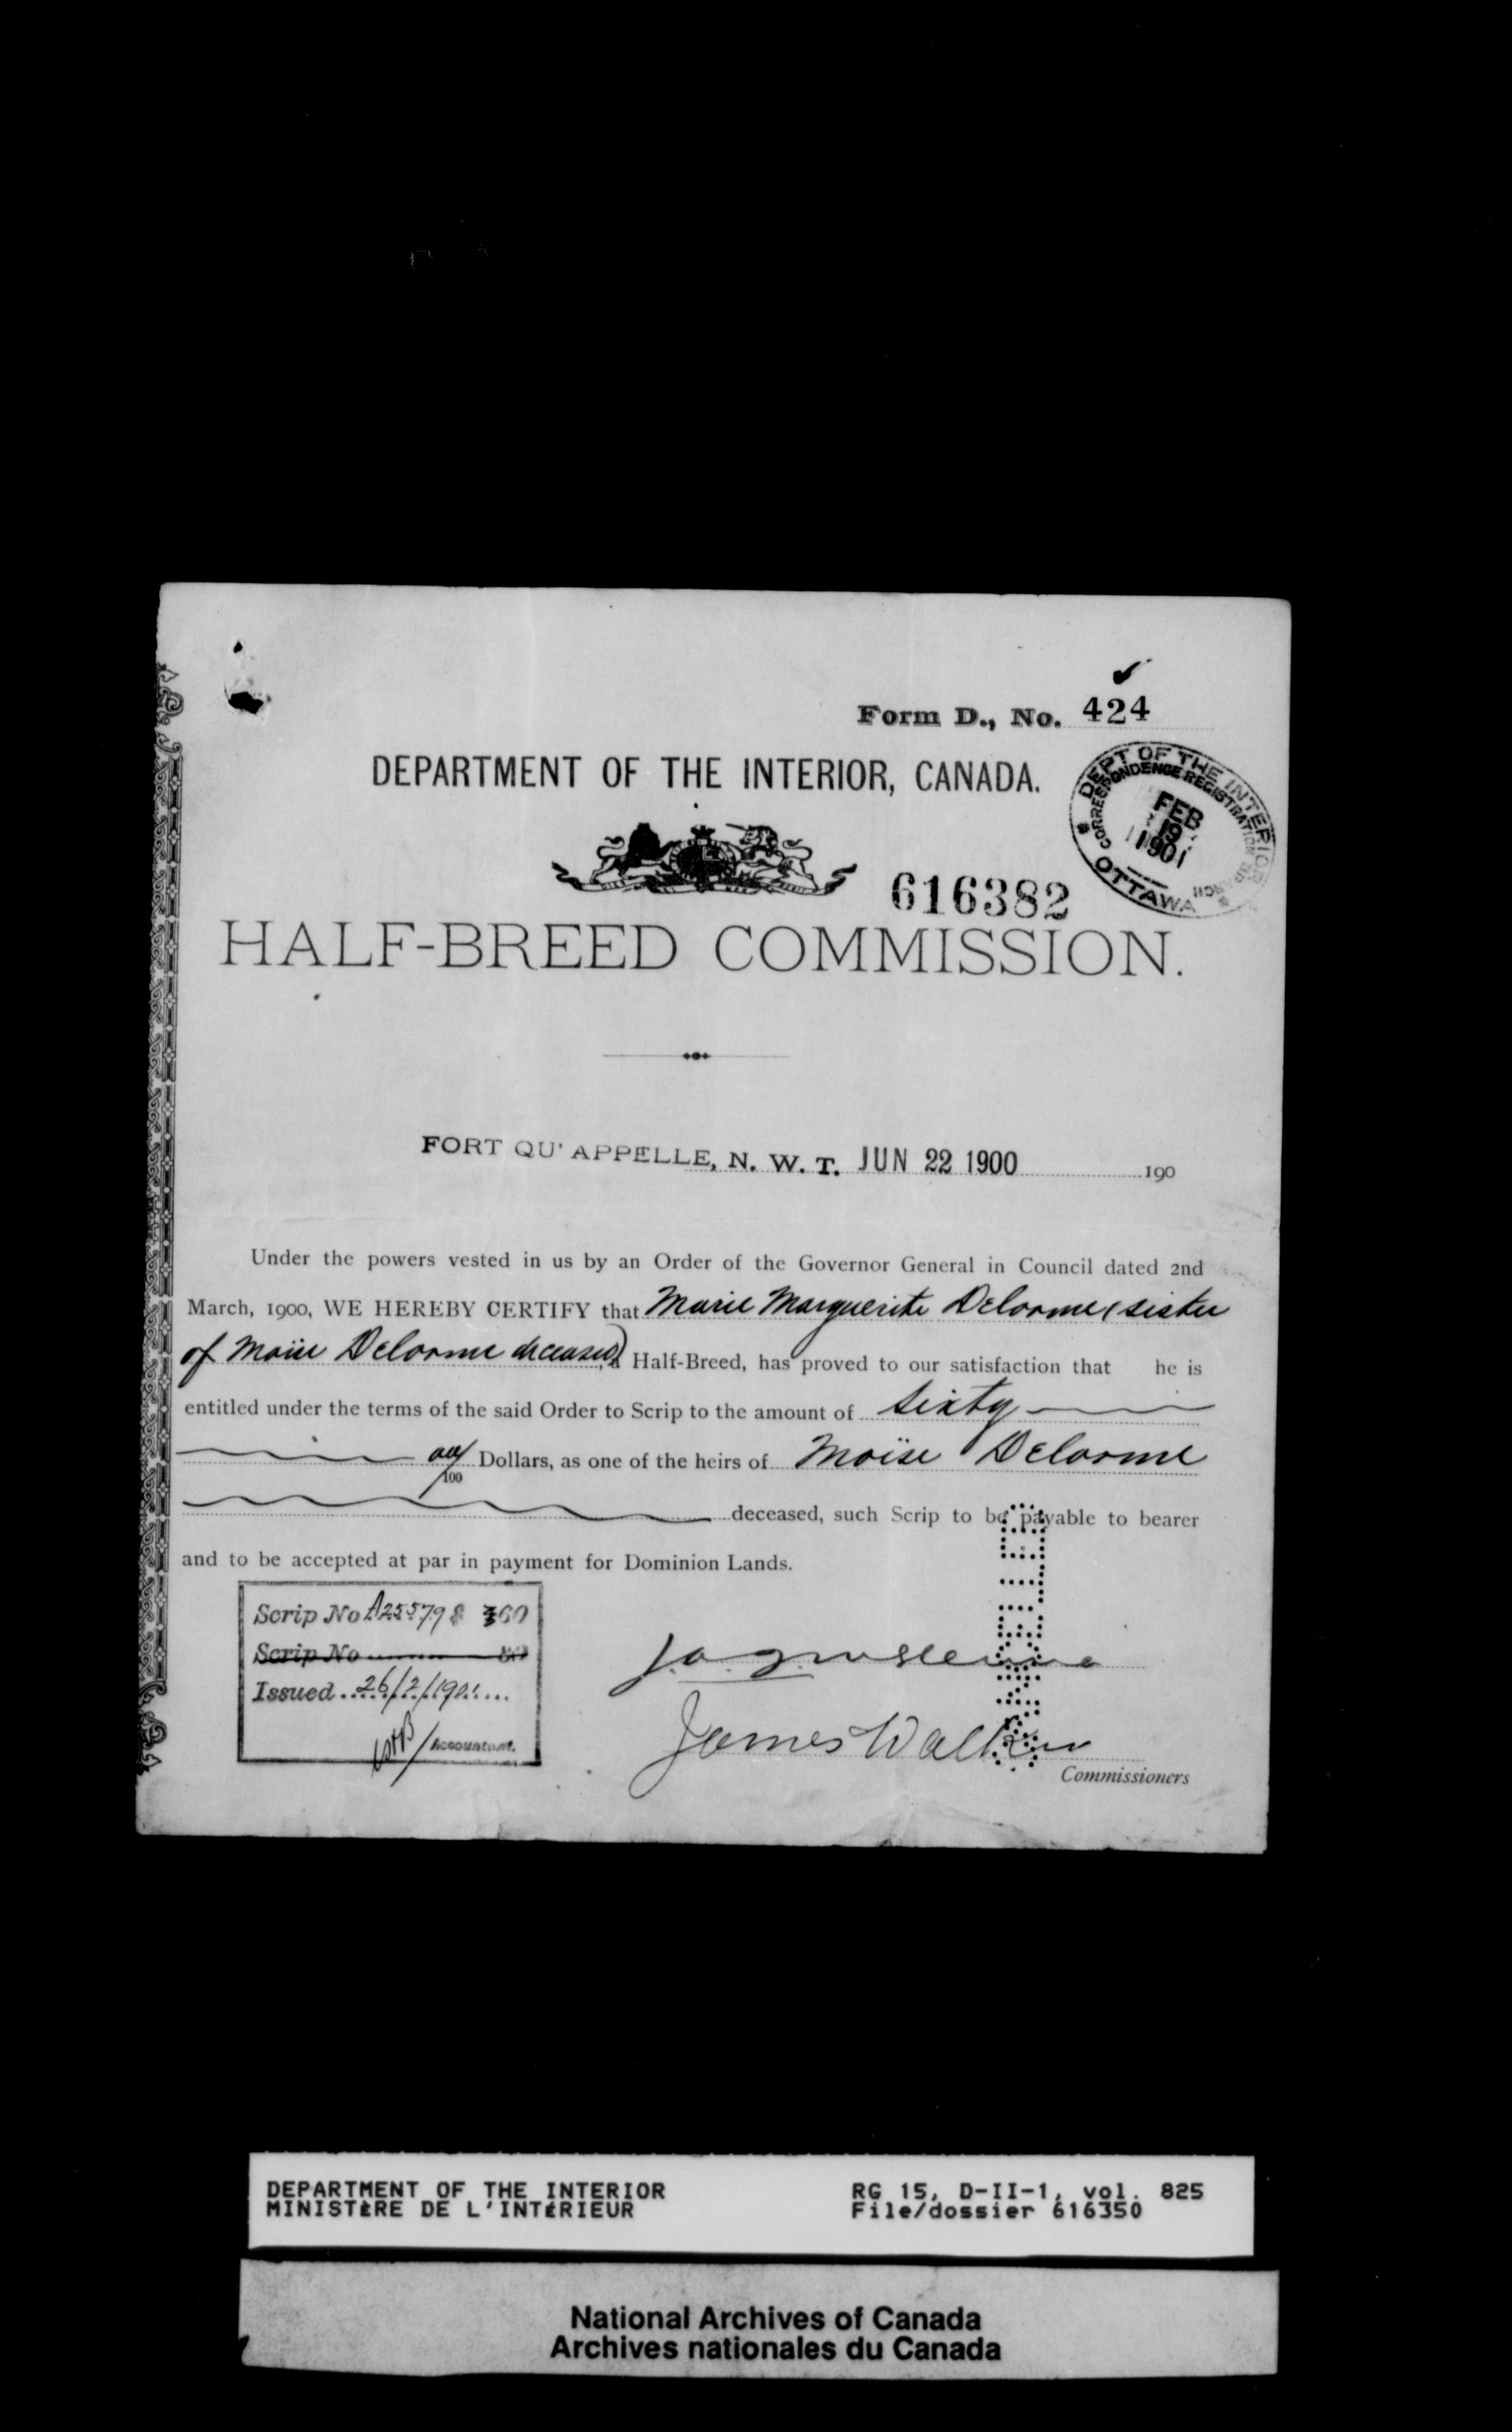 Form D., No. 424
DEPARTMENT OF THE INTERIOR, CANADA.
DEPT OF THE INTERIOR
CORRESPONDENCE REGISTRATION BRANCH
FEB
19
1901
OTTAWA
616382
HALF-BREED COMMISSION.
FORT QU'APPELLE, N. W. T. JUN 22 1900 190
Under the powers vested in us by an Order of the Governor General in Council dated 2nd
March, 1900, WE HEREBY CERTIFY that Marie Marguerite Delorme (sister
of Moïse Delorme deceased) a Half-Breed, has proved to our satisfaction that he is
entitled under the terms of the said Order to Scrip to the amount of sixty
00/100 Dollars, as one of the heirs of Moïse Delorme
deceased, such Scrip to be payable to bearer
and to be accepted at par in payment for Dominion Lands.
Scrip No A25579 8 $60
Scrip No 80
Issued 26/2/1901
Accountant.
CANCELLED
James Walker
Commissioners
DEPARTMENT OF THE INTERIOR RG 15, D-II-1, vol. 825
MINISTÈRE DE L'INTÉRIEUR File/dossier 616350
National Archives of Canada
Archives nationales du Canada